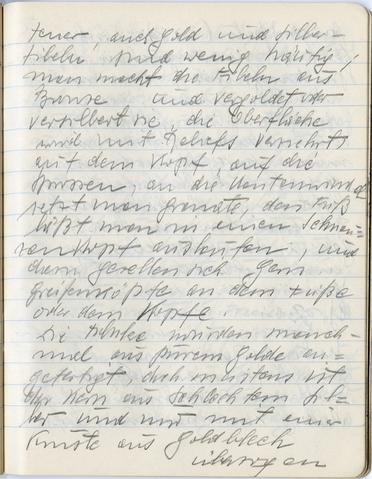 teuer, auch Gold und Silber-
fibeln sind wenig häufig;
man macht die Fibeln aus
Bronze und vergoldet oder
versilbert sie, die Oberfläche
wird mit Reliefs verziert
auf dem Kopf, auf die
an die
setzt man Granate, den Fuß
läßt man in einen Schlan=
genkopf auslaufen, und
dann gesellen sich gern
Greifenköpfe an dem Fuße
oder dem Kopfe
Die wurden manch-
mal aus purem Golde an=
gefertigt, doch meistens ist
der Kern aus schlechtem Sil-
ber und nur mit einer
Kruste aus Goldblech
überzogen